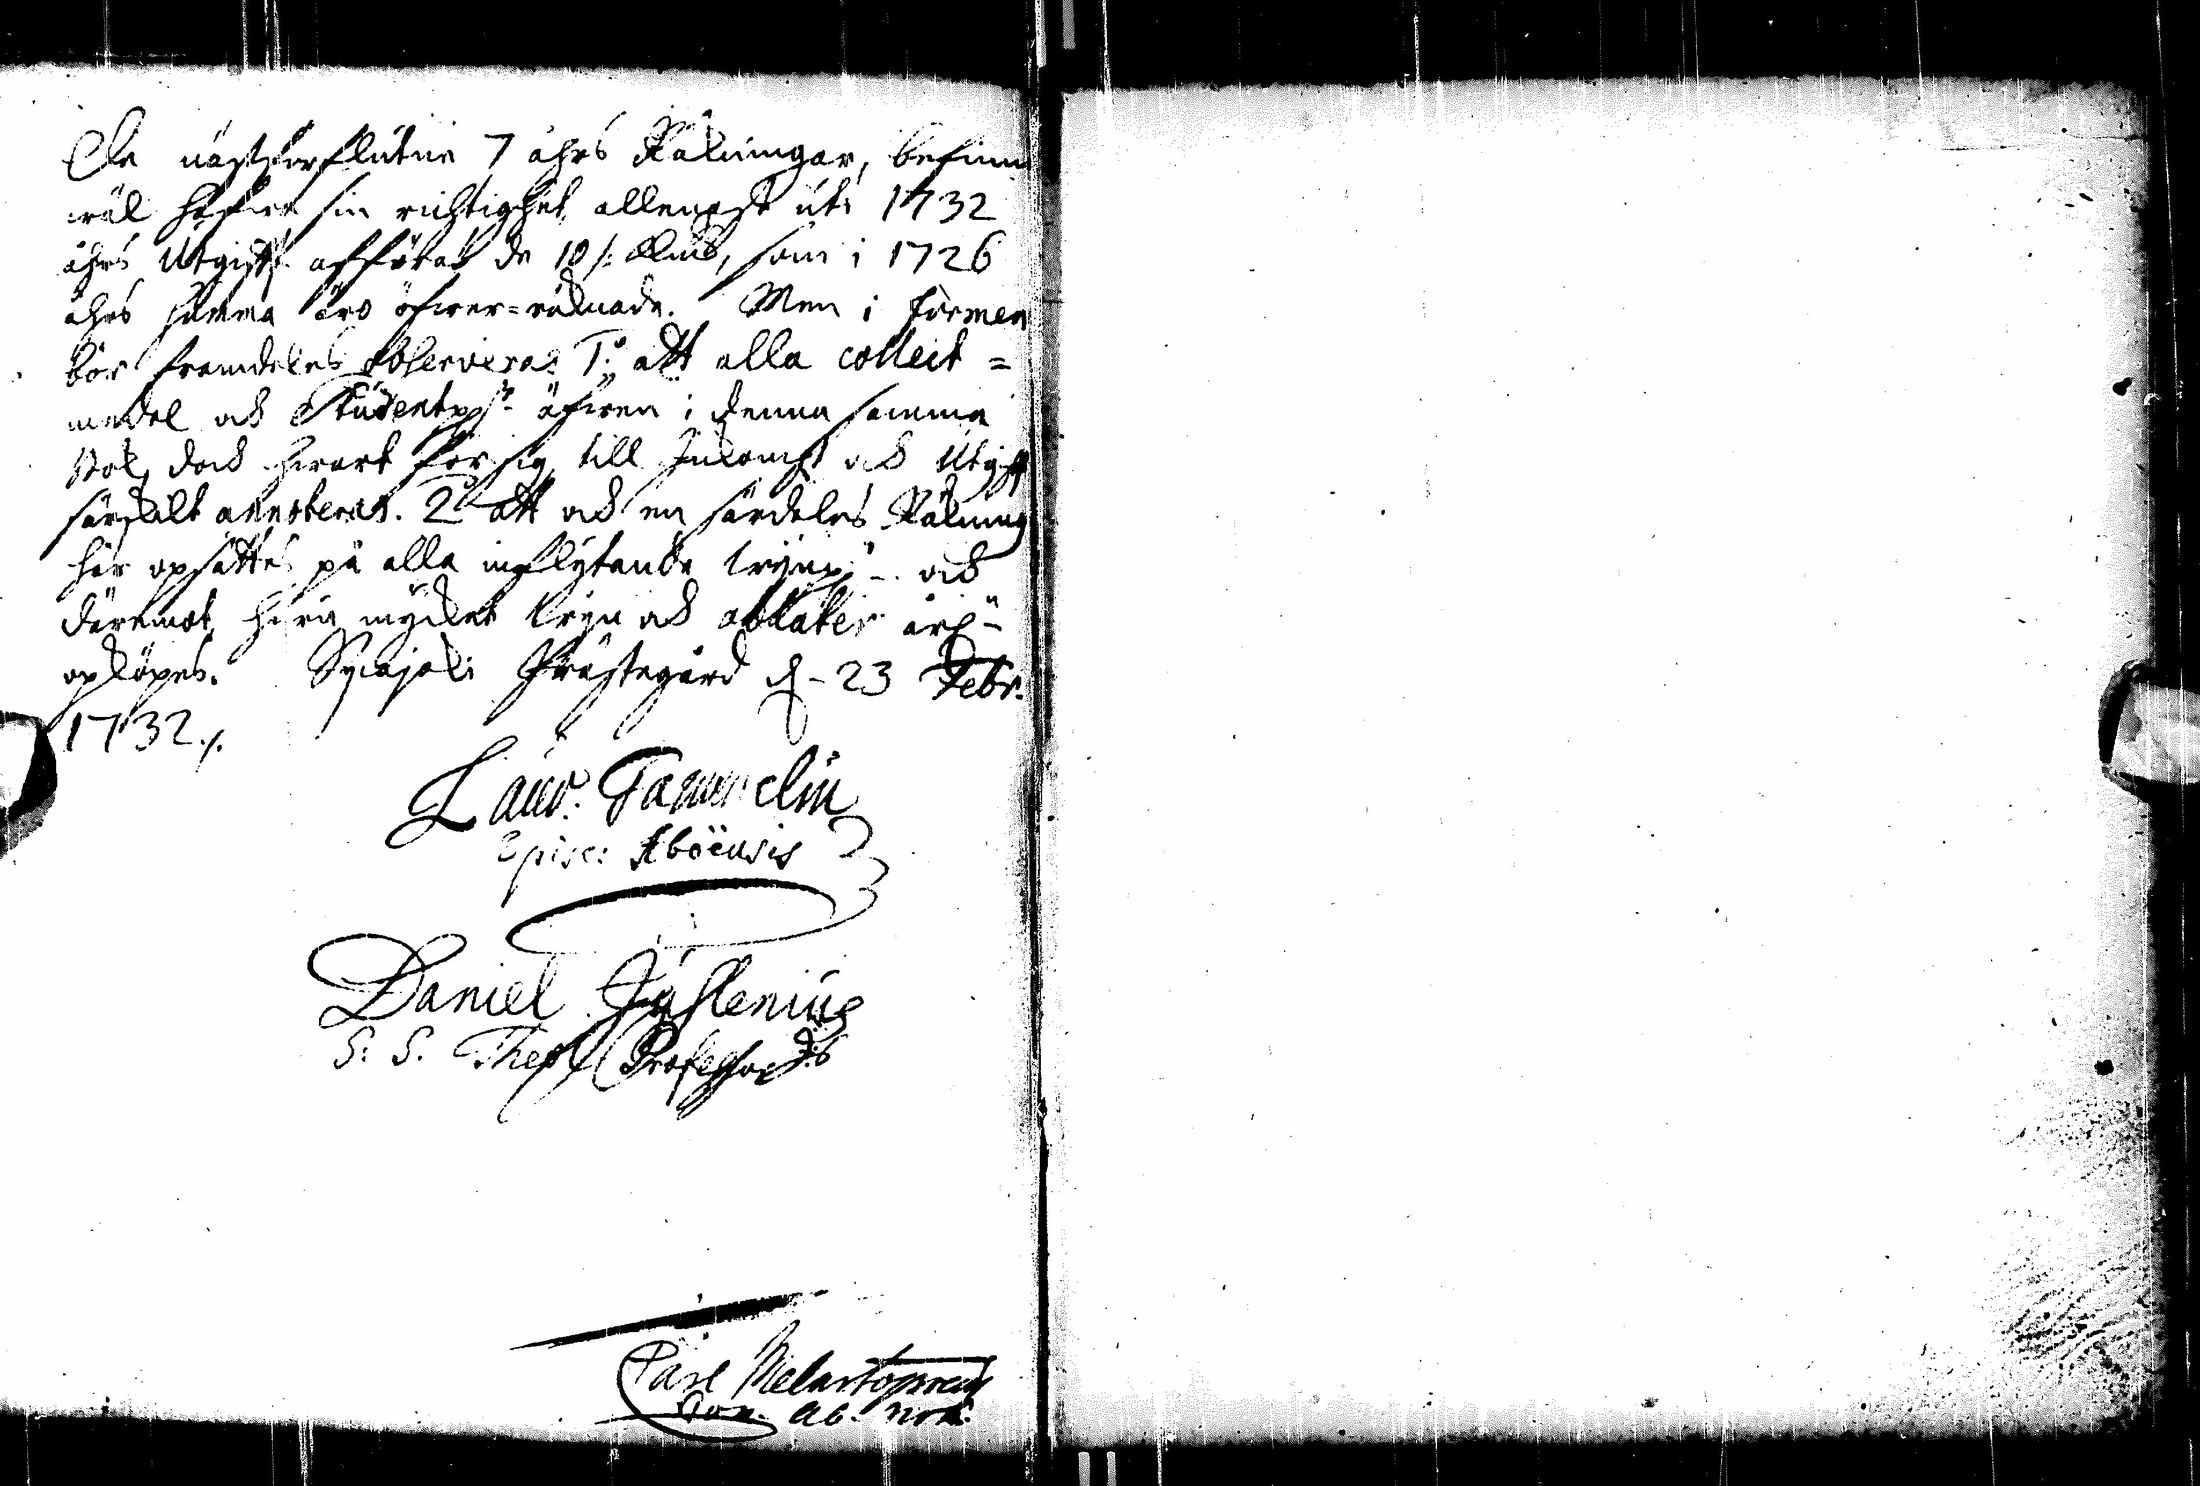 De nästförflutne 7 åhrs Räkningar, befinn
wäl hafwa sin richtighet, allenast uti 1732
åhrs Utgifft afföras de 10 /: som i 1726
åhrs summa äro öfwer-räknade. Men i formen
bör framdeles observeras 1:o att alla collect-
medel och Studentp. äfwen i denna samma
bok, doch hwart för sig, till Inkomst och Utgifft
särskilt annoteras. 2:o att och en särdeles Räkning
här opsättes på alla inflytande och
däremot, huru mycket och oblater
opköpes. Prästegård d. 23 Febr.
1732./.
Laur. Tammelin
Episc: Aboënsis
Daniel Juslenius
S: S. Theol. Professor
Carl Melartopoeus
Con. Ab. Not.